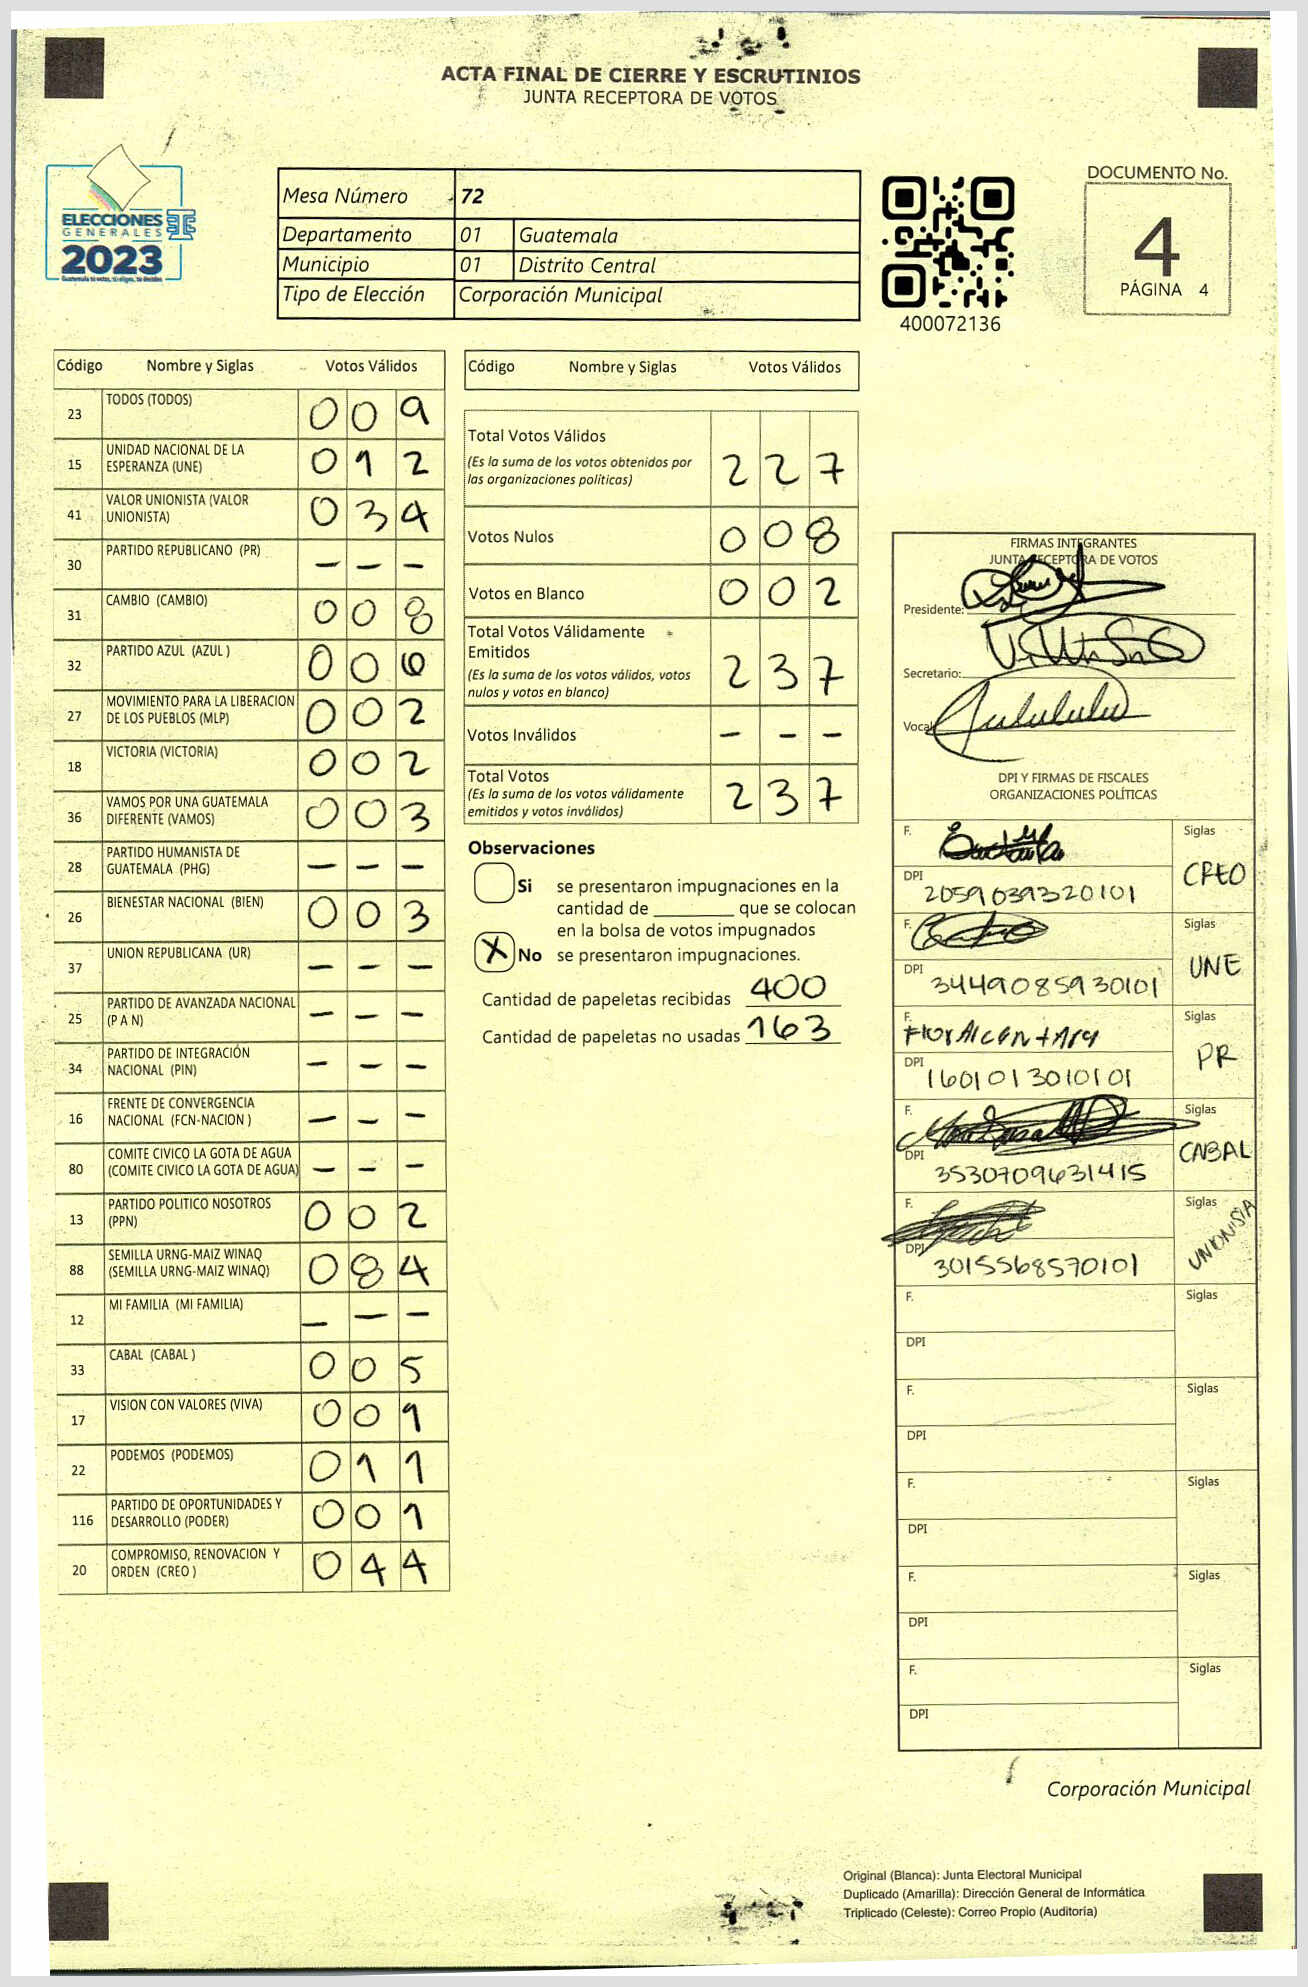 ACTA FINAL DE CIERRE Y ESCRUTINIOS
JUNTA RECEPTORA DE VOTOS
ELECCIONES
GENERALES
2023
Mesa Número 72
Departamento 01 Guatemala
Municipio 01 Distrito Central
Tipo de Elección Corporación Municipal
400072136
DOCUMENTO No.
4
PÁGINA 4
Código Nombre y Siglas Votos Válidos
23 TODOS (TODOS) 0 0 9
15 UNIDAD NACIONAL DE LA ESPERANZA (UNE) 0 1 2
41 VALOR UNIONISTA (VALOR UNIONISTA) 0 3 4
30 PARTIDO REPUBLICANO (PR) — — —
31 CAMBIO (CAMBIO) 0 0 8
32 PARTIDO AZUL (AZUL ) 0 0 6
27 MOVIMIENTO PARA LA LIBERACION DE LOS PUEBLOS (MLP) 0 0 2
18 VICTORIA (VICTORIA) 0 0 2
36 VAMOS POR UNA GUATEMALA DIFERENTE (VAMOS) 0 0 3
28 PARTIDO HUMANISTA DE GUATEMALA (PHG) — — —
26 BIENESTAR NACIONAL (BIEN) 0 0 3
37 UNION REPUBLICANA (UR) — — —
25 PARTIDO DE AVANZADA NACIONAL (P A N) — — —
34 PARTIDO DE INTEGRACIÓN NACIONAL (PIN) — — —
16 FRENTE DE CONVERGENCIA NACIONAL (FCN-NACION ) — — —
80 COMITE CIVICO LA GOTA DE AGUA (COMITE CIVICO LA GOTA DE AGUA) — — —
13 PARTIDO POLITICO NOSOTROS (PPN) 0 0 2
88 SEMILLA URNG-MAIZ WINAQ (SEMILLA URNG-MAIZ WINAQ) 0 8 4
12 MI FAMILIA (MI FAMILIA) — — —
33 CABAL (CABAL ) 0 0 5
17 VISION CON VALORES (VIVA) 0 0 1
22 PODEMOS (PODEMOS) 0 1 1
116 PARTIDO DE OPORTUNIDADES Y DESARROLLO (PODER) 0 0 1
20 COMPROMISO, RENOVACION Y ORDEN (CREO ) 0 4 4
Código Nombre y Siglas Votos Válidos
Total Votos Válidos 2 2 7
(Es la suma de los votos obtenidos por
las organizaciones políticas)
Votos Nulos 0 0 8
Votos en Blanco 0 0 2
Total Votos Válidamente
Emitidos 2 3 7
(Es la suma de los votos válidos, votos
nulos y votos en blanco)
Votos Inválidos — — —
Total Votos 2 3 7
(Es la suma de los votos válidamente
emitidos y votos inválidos)
Observaciones
Si se presentaron impugnaciones en la
cantidad de ________ que se colocan
en la bolsa de votos impugnados
X No se presentaron impugnaciones.
Cantidad de papeletas recibidas 400
Cantidad de papeletas no usadas 163
FIRMAS INTEGRANTES
JUNTA RECEPTORA DE VOTOS
Presidente:
Secretario:
Vocal
DPI Y FIRMAS DE FISCALES
ORGANIZACIONES POLÍTICAS
F. Siglas CREO
DPI 2059039320101
F. Siglas UNE
DPI 3449085930101
F. Flor Alcántara Siglas PR
DPI 1601013010101
F. Siglas CABAL
DPI 3530709631415
F. Siglas UNIONISTA
DPI 3015568570101
F. Siglas
DPI
F. Siglas
DPI
F. Siglas
DPI
F. Siglas
DPI
F. Siglas
DPI
Corporación Municipal
Original (Blanca): Junta Electoral Municipal
Duplicado (Amarilla): Dirección General de Informática
Triplicado (Celeste): Correo Propio (Auditoría)